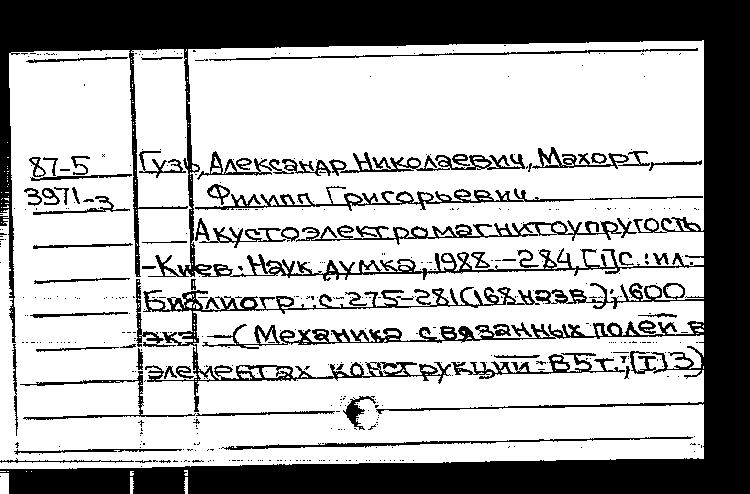 87-5 Гузь, Александр Николаевич, Махорт,
3971-3 Филипп Григорьевич.
Акустоэлектромагнитоупругость
-Киев: Наук думка, 1988.-284,[1]с.:ил.-
Библиогр.:с.275-281(168назв.);1600
экз.-(Механика связанных полей в
элементах конструкций: В 5 т.;[Т]3)